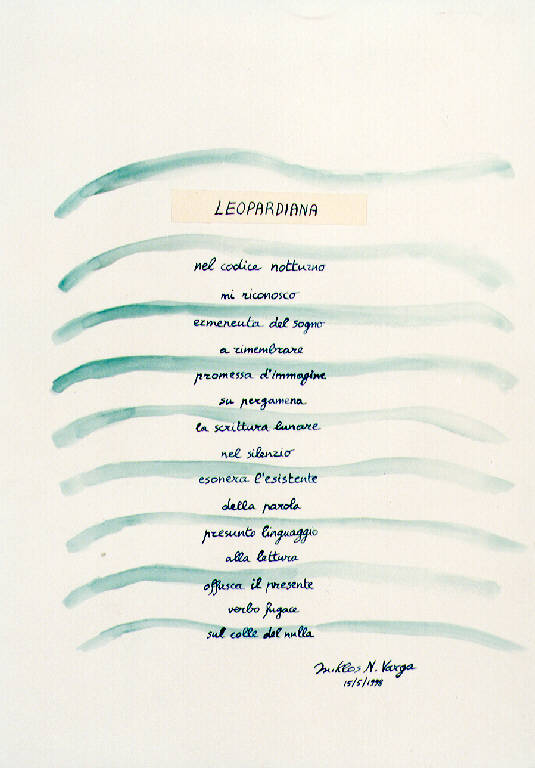 LEOPARDIANA
nel codice notturno
mi riconosco
ermeneuta del sogno
a rimembrare
promessa d'immagine
su pergamena
la scrittura lunare
nel silenzio
esonera l'esistente
della parola
presunto linguaggio
alla lettura
offusca il presente
verbo fugace
sul colle del nulla
Miklos N. Varga
15/5/1998